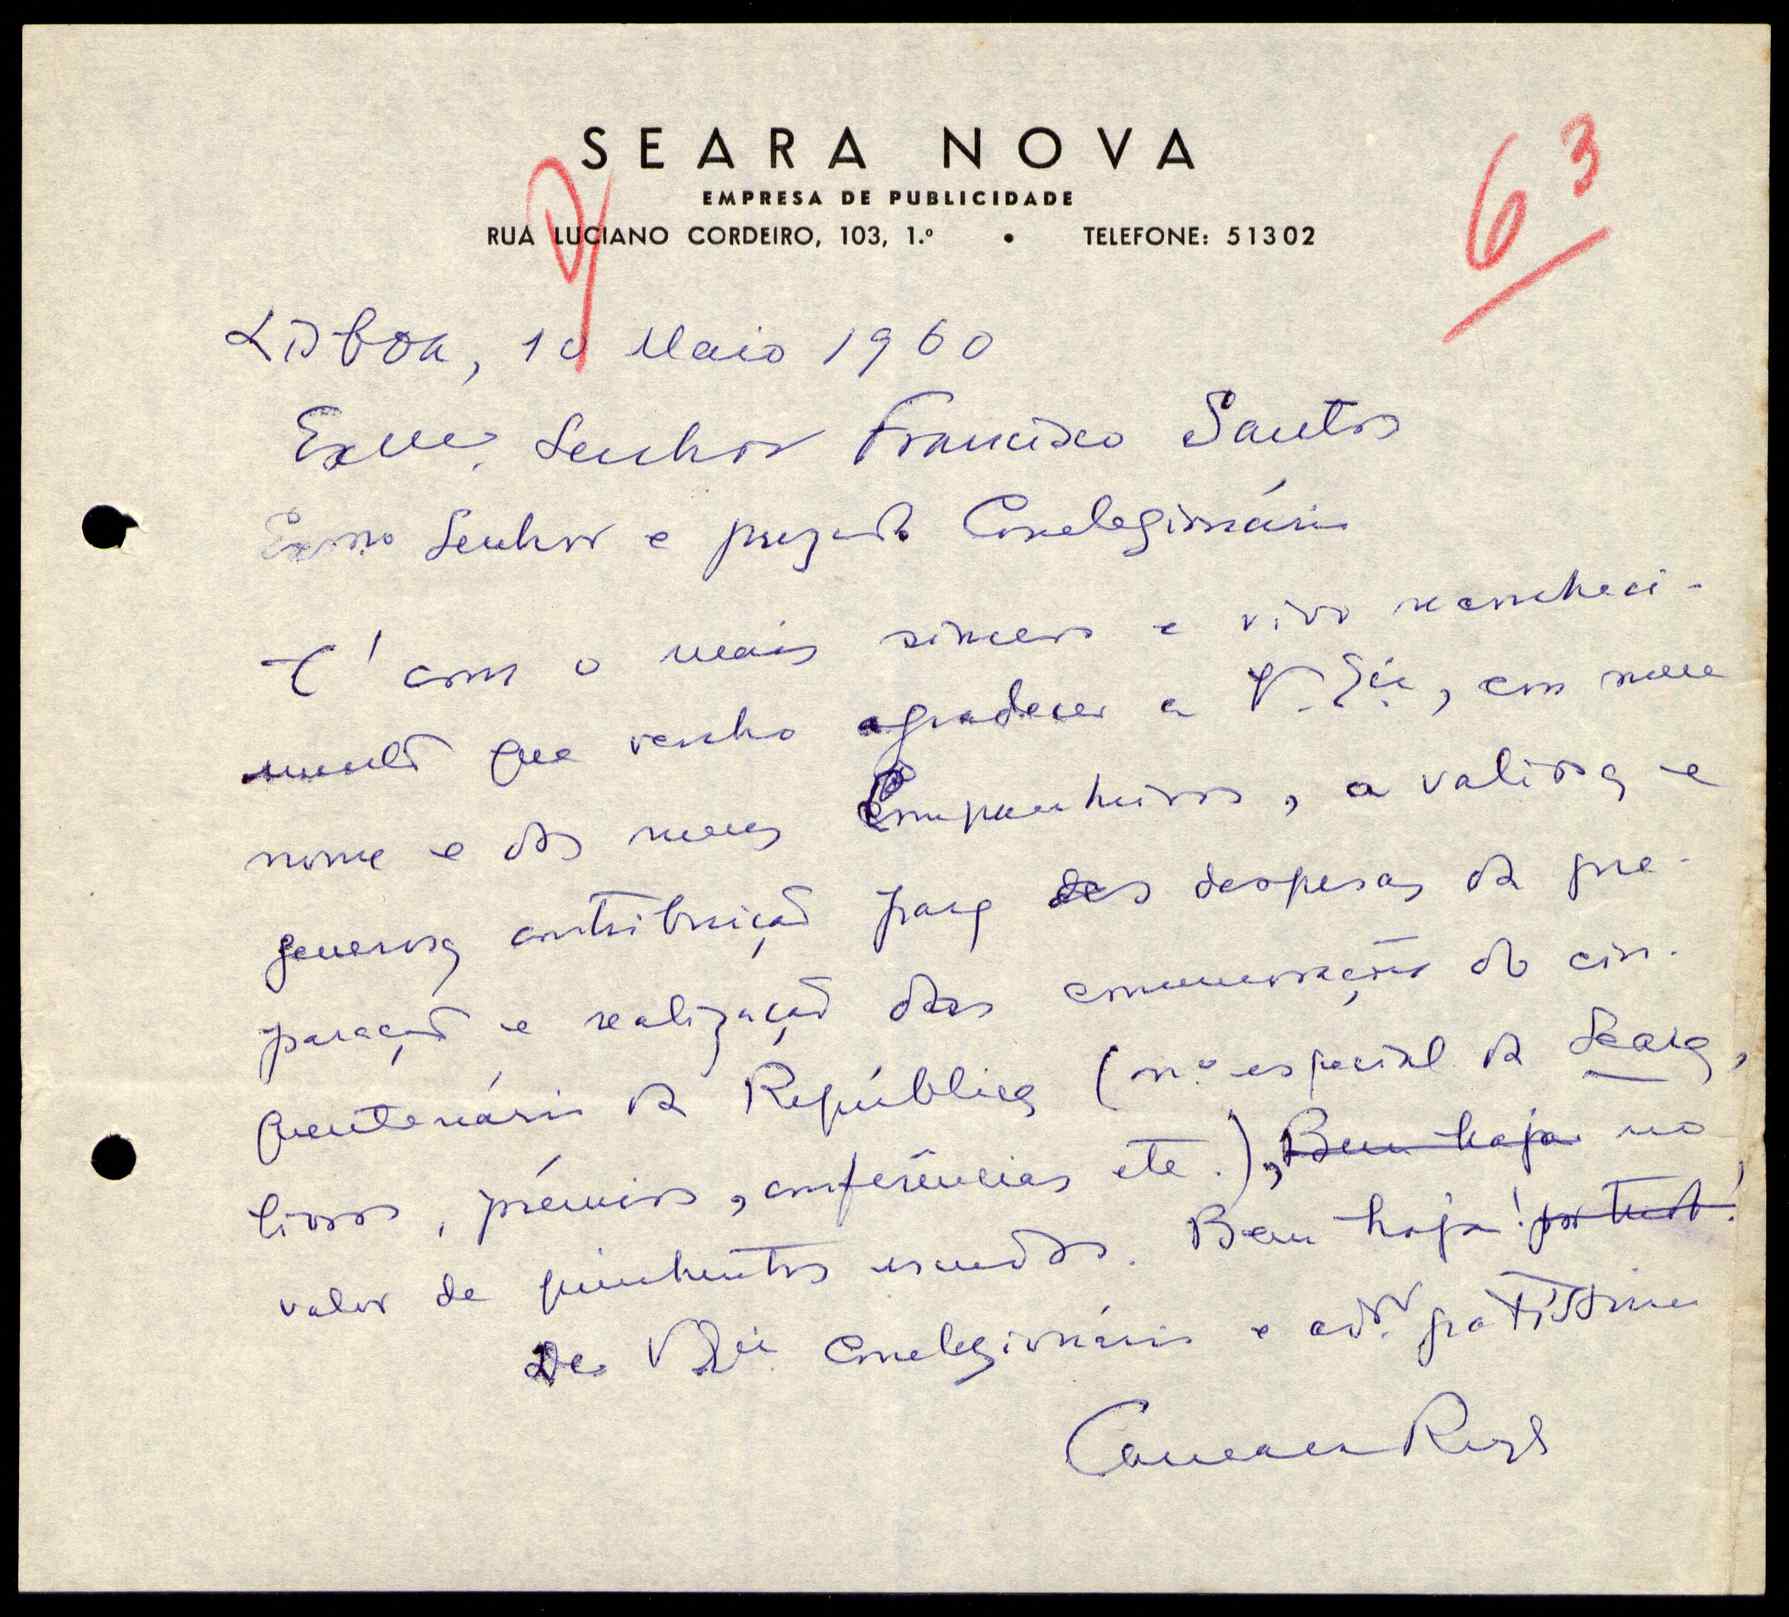 SEARA NOVA
EMPRESA DE PUBLICIDADE
RUA LUCIANO CORDEIRO, 103, 1.º • TELEFONE: 51302
63
Lisboa, 10 Maio 1960
Exmo. Senhor Francisco Santos
Exmo Senhor e prezado Correlegionário
É com o mais sincero e vivo reconheci-
mento que venho agradecer a V. Exa, em meu
nome e dos meus Companheiros, a valiosa e
generosa contribuição para as despesas da pre-
paração e realização das comemorações do cin-
quentenário da República (nº especial da Seara,
livros, prémios, conferências etc.), Bem haja no
valor de quinhentos escudos. Bem haja! por tudo!
De V Exa Correlegionário e adr. gratíssimo
Camara Reys